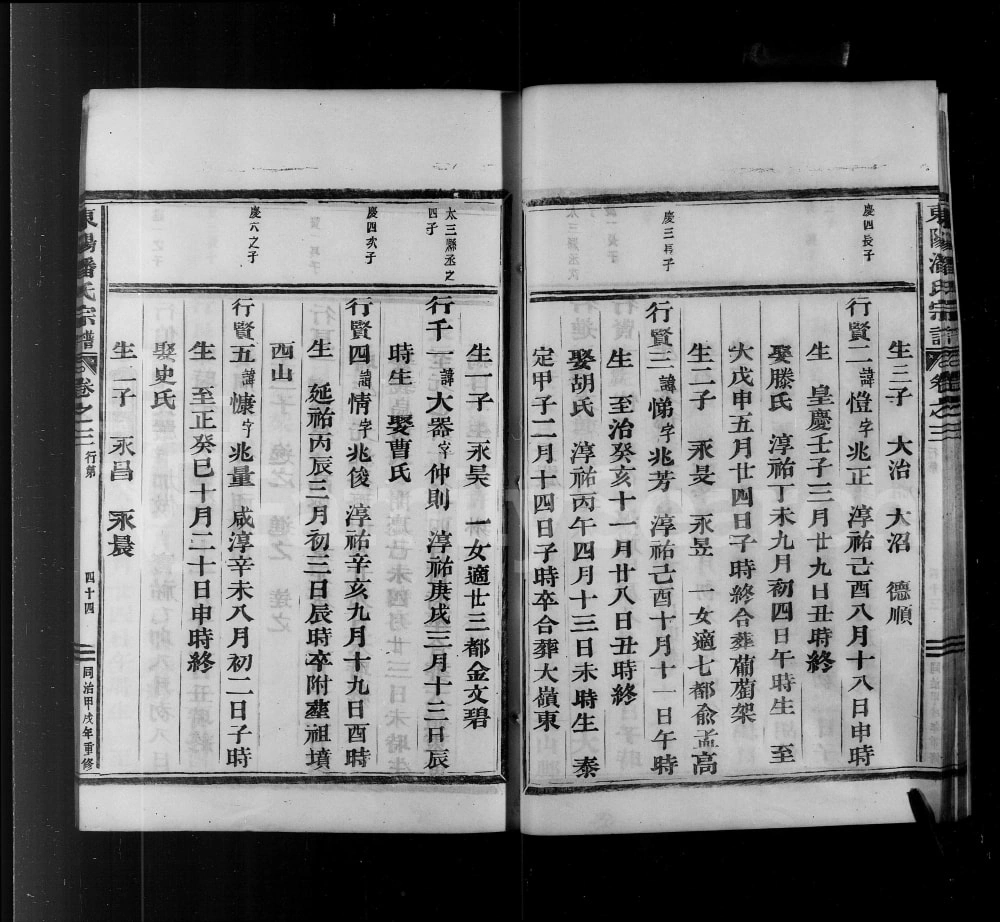 東陽潘氏宗譜
卷之三
慶四長子
生三子 大治 大沼 德順
行賢二諱愷字兆正 淳祐己酉八月十八日申時
生 皇慶壬子三月廿九日丑時終
娶滕氏 淳祐丁未九月初四日午時生 至
大戊申五月廿四日子時終合葬葡萄架
生二子 永旻 永昱 一女適七都俞孟高
慶三再子
行賢三諱悌字兆芳 淳祐己酉十月十一日午時
生 至治癸亥十一月廿八日丑時終
娶胡氏 淳祐丙午四月十三日未時生 泰
定甲子二月十四日子時卒合葬大嶺東
生一子 永昊 一女適廿三都金文碧
太三縣丞之四子
行千一諱大器字仲則 淳祐庚戌三月十三日辰
時生 娶曹氏
慶四次子
行賢四諱情字兆後 淳祐辛亥九月十九日酉時
生 延祐丙辰三月初三日辰時卒附塟祖墳
西山
慶六之子
行賢五諱慷字兆量 咸淳辛未八月初二日子時
生 至正癸巳十月二十日申時終
娶史氏
生二子 永昌 永晨
東陽潘氏宗譜
卷之三
行第
四十四
同治甲戌年重修